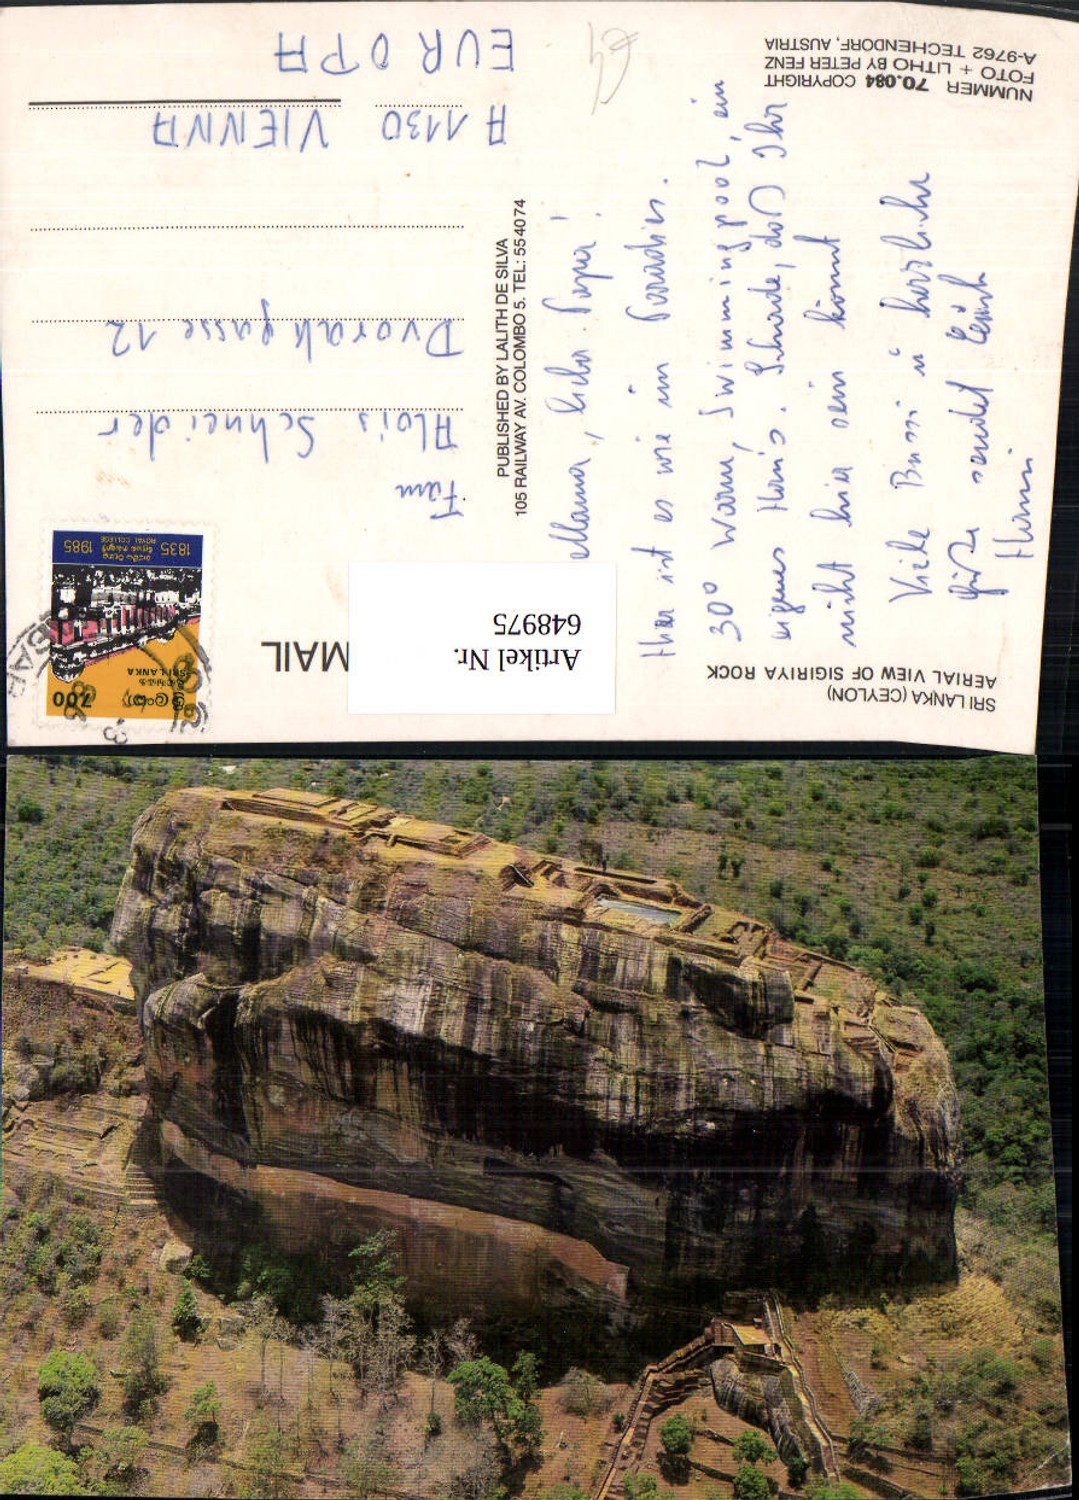 SRI LANKA (CEYLON)
AERIAL VIEW OF SIGIRIYA ROCK
Mama, lieber Papa!
Hier ist es wie im Paradies.
30° warm, Swimmingpool, ein
eigenes Haus. Schade, daß Ihr
nicht hier sein könnt
Viele Bussi u herzliche
Grüße sendet Euch
Hanni
NUMMER 70.084 COPYRIGHT
FOTO + LITHO BY PETER FENZ
A-9762 TECHENDORF, AUSTRIA
PUBLISHED BY LALITH DE SILVA
105 RAILWAY AV. COLOMBO 5. TEL: 554074
MAIL
Artikel Nr.
648975
ශ්‍රී ලංකා
7.00
SRI LANKA
1835
ROYAL COLLEGE
1985
Fam
Alois Schneider
Dvorakgasse 12
A 1130 VIENNA
EUROPA